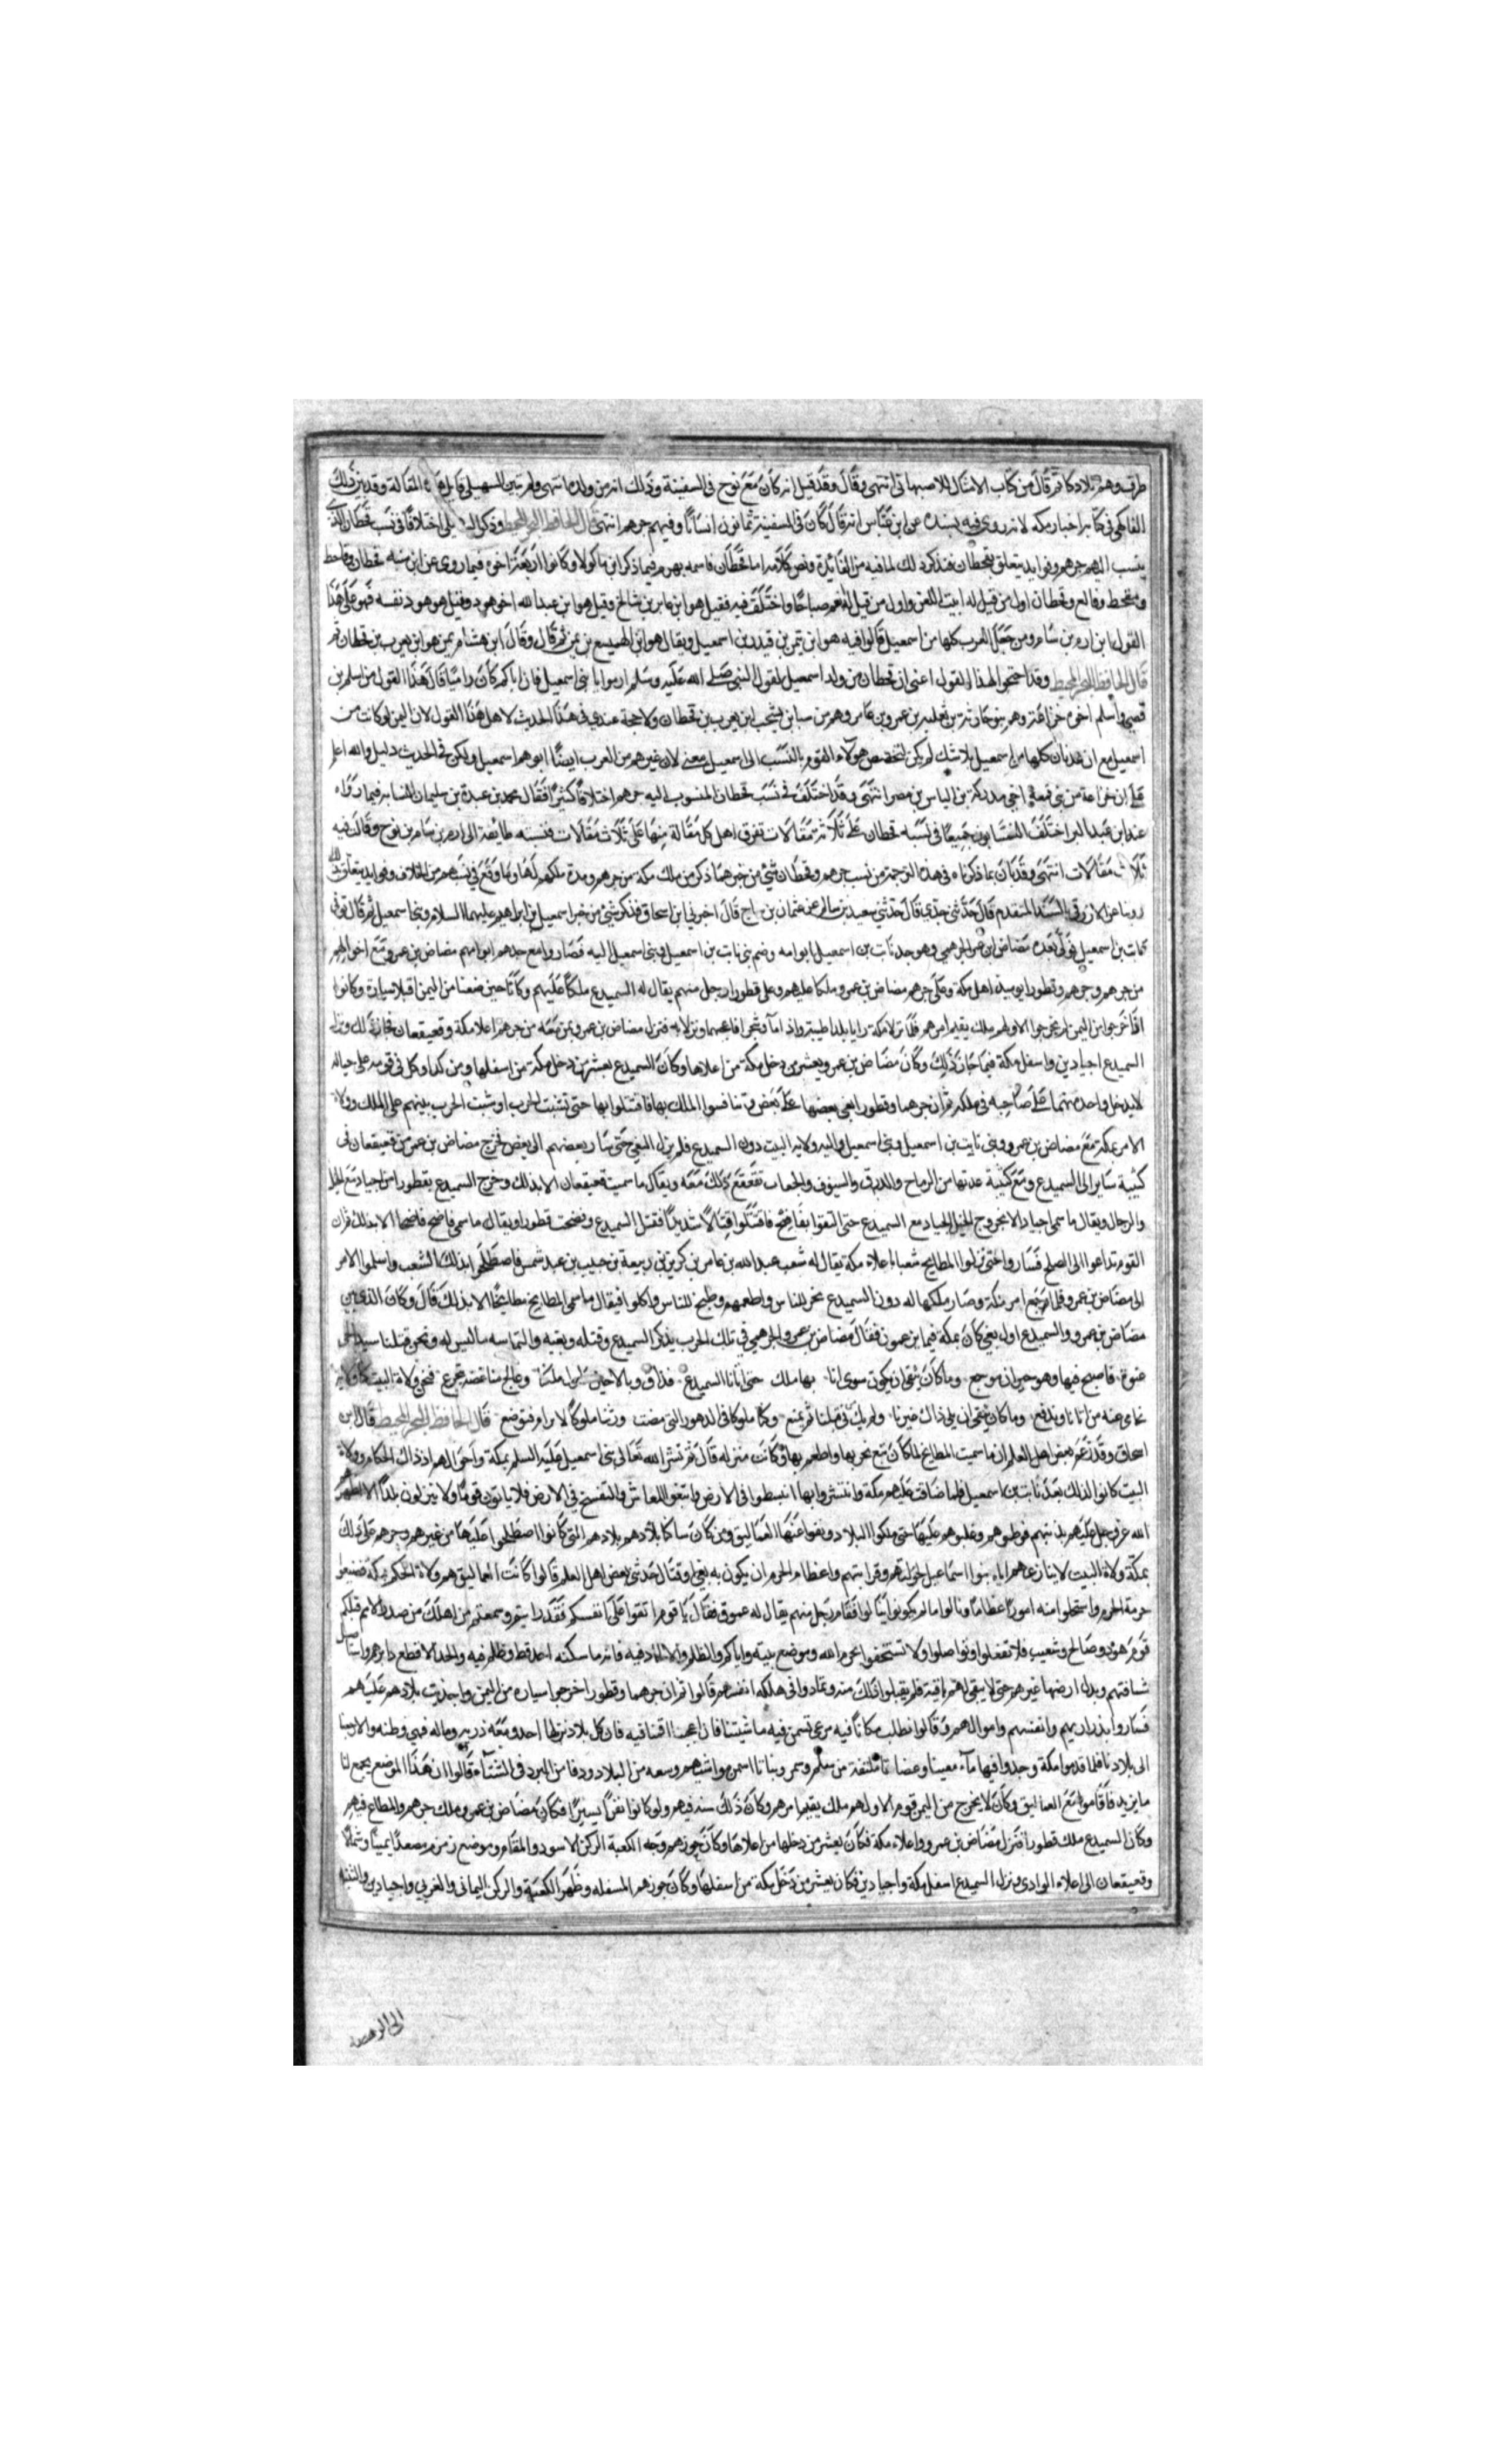 طرقه وهم بلادكا ثم قال من كتاب الامثال للاصبهاني انتهى وقال وقد قيل انه كان مع نوح في السفينة وذلك انه من ولده انتهى ولم يبين السهيلي قايل هذه المقالة وقد بين ذلك
الفاكهي في كتابه اخبار مكه لانه روى فيه بسنده عن ابن عباس انه قال كان في السفينة ثمانون انسانا وفيهم جرهم انتهى قال الحافظ البحر المحيط وذكر السهيلي اختلافا في نسب قحطان الذي
ينسب اليهم جرهم وفوايد يتعلق بقحطان فنذكر ذلك لما فيه من الفائدة ونص كلامه اما قحطان فاسمه مهزم فيما ذكر ابن ماكولا وكانوا اربعة اخوة فيما روى عن ابن منبه قحطان وقاحط
ومقحط وفالع وقحطان اول من قيل له ابيت اللعن واول من قيل له انعم صباحا واختلف فيه فقيل هو ابن عابر بن شالخ وقيل هو ابن عبد الله اخو هود وقيل هو هود نفسه فهو على هذا
القول ابن ارم بن سام ومن جعل العرب كلها من اسمعيل قالوا فيه هو ابن تيمن بن قيدر بن اسمعيل ويقال هو ابن الهميسع بن يمن ثم قال وقال ابن هشام يمن هو ابن يعرب بن قحطان ثم
قال الحافظ البحر المحيط وقد احتجوا لهذا القول اعني ان قحطان من ولد اسمعيل لقول النبي صلى الله عليه وسلم ارموا يا بني اسمعيل فان اباكم كان راميا قال هذا القول من اسلم بن
قصي واسلم اخو خزاعة وهم بنو حارثة بن ثعلبة بن عمرو بن عامر وهم من سبا بن يشجب ابن يعرب بن قحطان ولا حجة عندي في هذا الحديث لاهل هذا القول لان اليمن لو كانت من
اسمعيل مع ان عدنان كلها من اسمعيل بلا شك لم يكن لتخصيص هولاء القوم بالنسب الى اسمعيل معنى لان غيرهم من العرب ايضا ابوهم اسمعيل ولكن في الحديث دليل والله اعلم
على ان خزاعة من بني قمعة اخي مدركة بن الياس بن مضر انتهى وقد اختلف في نسب قحطان المنسوب اليه جرهم اختلافا كثيرا فقال محمد بن عبدة بن سليمان النسابه فيما رواه
عنه ابن عبد البر اختلف النسابون جميعا في نسبه قحطان على ثلاثة مقالات تفرق اهل كل مقالة منها على ثلاث مقالات فنسبه طايفة الى ارم بن سام بن نوح وقالت فيه
ثلاث مقالات انتهى وقد بان بما ذكرناه في هذه الترجمة من نسب جرهم وقحطان شيء من خبرهما ذكر من ملك مكة من جرهم ومدة ملكهم لها وما وقع في نسبهم من الخلاف وفوايد يتعلق بذلك
روينا عن الازرقي بالسند المتقدم قال حدثني جدي قال حدثني سعيد بن سالم عن عثمان بن ساج قال اخبرني ابن اسحاق فذكر شيئ من خبر اسمعيل بن ابراهيم عليهما السلام وبني اسمعيل ثم قال توفي
نابت بن اسمعيل فولي بعده مضاض ابن عمرو الجرهمي وهو جد نابت بن اسمعيل ابو امه وضم بني نابت بن اسمعيل وبني اسمعيل اليه فصاروا مع جدهم ابو امهم مضاض بن عمرو ومع اخوالهم
من جرهم وجرهم وقطورا يوميذ اهل مكة وعلى جرهم مضاض بن عمرو ملكا عليهم وعلى قطورا رجل منهم يقال له السميدع ملكا عليهم وكانا حين ظعنا من اليمن اقبلا سيارة وكانوا
اذا خرجوا من اليمن لم يخرجوا الا ولهم ملك يقيم امرهم فلما نزلا مكة رايا بلدا طيبة واذا ماء وشجر فاعجبهما ونزلا به فنزل مضاض بن عمرو بمن معه من جرهم اعلا مكة وقعيقعان فحاز ذلك ونزل
السميدع اجيادين واسفل مكة فيما حاز ذلك وكان مضاض بن عمرو يعشر من دخل مكة من اعلاها وكان السميدع يعشر من دخل مكة من اسفلها ومن كدا وكل في قومه على حياله
لا يدخل واحد منهما على صاحبه في ملكه ثم ان جرهما وقطورا بغى بعضها على بعض وتنافسوا الملك بها فاقتتلوا بها حتى نشبت الحرب او شبت الحرب بينهم على الملك وولاة
الامر بمكة مع مضاض بن عمرو وبني نابت بن اسمعيل وبني اسمعيل واليه ولاية البيت دون السميدع فلم يزل البغي حتى سار بعضهم الى بعض فخرج مضاض بن عمرو من قعيقعان في
كتيبة سايرا الى السميدع ومع كتيبة عدتها من الرماح والدرق والسيوف والجعاب تقعقع ذلك معه ويقال ما سميت قعيقعان الا بذلك وخرج السميدع بقطورا من اجياد مع الخيل
والرجال ويقال ما سمي اجياد الا بخروج الخيل الجياد مع السميدع حتى التقوا بفاضح فاقتتلوا قتالا شديدا فقتل السميدع وفضحت قطورا ويقال ما سمي فاضح فاضحا الا بذلك ثم ان
القوم تداعوا الى الصلح فساروا حتى نزلوا المطابخ شعبا باعلاء مكة يقال له شعب عبد الله بن عامر بن كريز بن ربيعة بن حبيب بن عبد شمس فاصطلحوا بذلك الشعب واسلموا الامر
الى مضاض بن عمرو فلما رجع امر مكة وصار ملكها له دون السميدع نحر للناس واطعمهم وطبخ للناس واكلوا فيقال ما سمي المطابخ مطابخا الا بذلك قال وكان الذي بين
مضاض بن عمرو والسميدع اول بغي كان بمكة فيما يزعمون فقال مضاض بن عمرو الجرهمي في تلك الحرب يذكر السميدع وقتله وبغيه والتماسه ما ليس له ونحن قتلنا سيد الحي
عنوة فاصبح فيها وهو حيران موجع وما كان يبغي ان يكون سوى انا بها ملك حتى اتانا السميدع فذاق وبالا حين حاول ملكنا وعالج منا غصة تجرع فنحن ولاة البيت كنا ولاته
نحامي عنه من اتانا وندفع وما كان يبغي ان يلي ذاك غيرنا ولم يك حي قبلنا ثم يمنع وكنا ملوكا في الدهور التي مضت ورثنا ملوكا لا ترام فتوضع قال الحافظ البحر المحيط قال ابن
اسحاق وقد زعم بعض اهل العلم ان ما سميت المطابخ لما كان تبع نحر بها واطعم بها وكانت منزله قال ثم نشر الله تعالى بني اسمعيل عليه السلم بمكة واخوالهم اذ ذاك الحكام وولاة
البيت كانوا لذلك بعد نابت بن اسمعيل فلما ضاقت عليهم مكة وانتشروا بها انبسطوا في الارض وابتغوا المعاش والتفسح في الارض فلا ياتون قوما ولا ينزلون بلدا الا اظهرهم
الله عز وجل عليهم بدينهم فوطيوهم وغلبوهم عليها حتى ملكوا البلاد ونفوا عنها العماليق ومن كان ساكنا بلادهم بلادهم التي كانوا اصطلحوا عليها من غيرهم وجرهم على ذلك
بمكة ولاة البيت لا ينازعهم اياه بنوا اسماعيل لخولتهم وقرابتهم واعظام الحرم ان يكون به بغي او قتال حدثني بعض اهل العلم قالوا كانت العماليق هم ولاة الحكم بمكة فضيعوا
حرمة الحرم واستحلوا منه امورا عظاما ونالوا ما لم يكونوا ينالوا فقام رجل منهم يقال له عموق فقال يا قوم اتقوا على انفسكم فقد رايتم وسمعتم من اهلك من صدر الامم قبلكم
قوم هود وصالح وشعيب فلا تفعلوا وتواصلوا ولا تستخفوا بحرم الله وموضع بيته واياكم والظلم والالحاد فيه فانه ما سكنه احد قط وظلم فيه والحد الا قطع دابرهم واستاصل
شافتهم وبدل ارضها غيرهم حتى لا يبقى لهم باقية فلم يقبلوا ذلك منه وتمادوا في هلكة انفسهم قالوا ثم ان جرهما وقطورا خرجوا سيارة من اليمن واجدبت بلادهم عليهم
فساروا بذراريهم وانفسهم واموالهم وقالوا نطلب مكانا فيه مرعى تسمن فيه ماشيتنا فان اعجبنا اقمنا فيه فان كل بلاد نزلها احد ومعه ذريته وماله فهي وطنه والا رجعنا
الى بلادنا فلما قدموا مكة وجدوا فيها ماء معينا وعضاتا ملتفة من سلم وسمر ونباتا اسمن مواشيهم وسعه من البلاد ودفا من البرد في الشتاء قالوا ان هذا الموضع يجمع لنا
ما نريد فاقاموا مع العماليق وكان لا يخرج من اليمن قوم الا ولهم ملك يقيم امرهم وكان ذلك سنة فيهم ولو كانوا نفرا يسيرا فكان مضاض بن عمرو ملك جرهم والمطاع فيهم
وكان السميدع ملك قطورا فنزل مضاض بن عمرو اعلاء مكة فكان يعشر من دخلها من اعلاها وكان حوزهم وجه الكعبة الركن الاسود والمقام وموضع زمزم مصعدا يمينا وشمالا
وقعيقعان الى اعلاء الوادي ونزل السميدع اسفل مكة واجيادين فكان يعشر من دخل مكة من اسفلها وكان حوزهم المسفله وظهر الكعبة والركن اليماني والغربي واجيادين والثنية
الى الرمضة